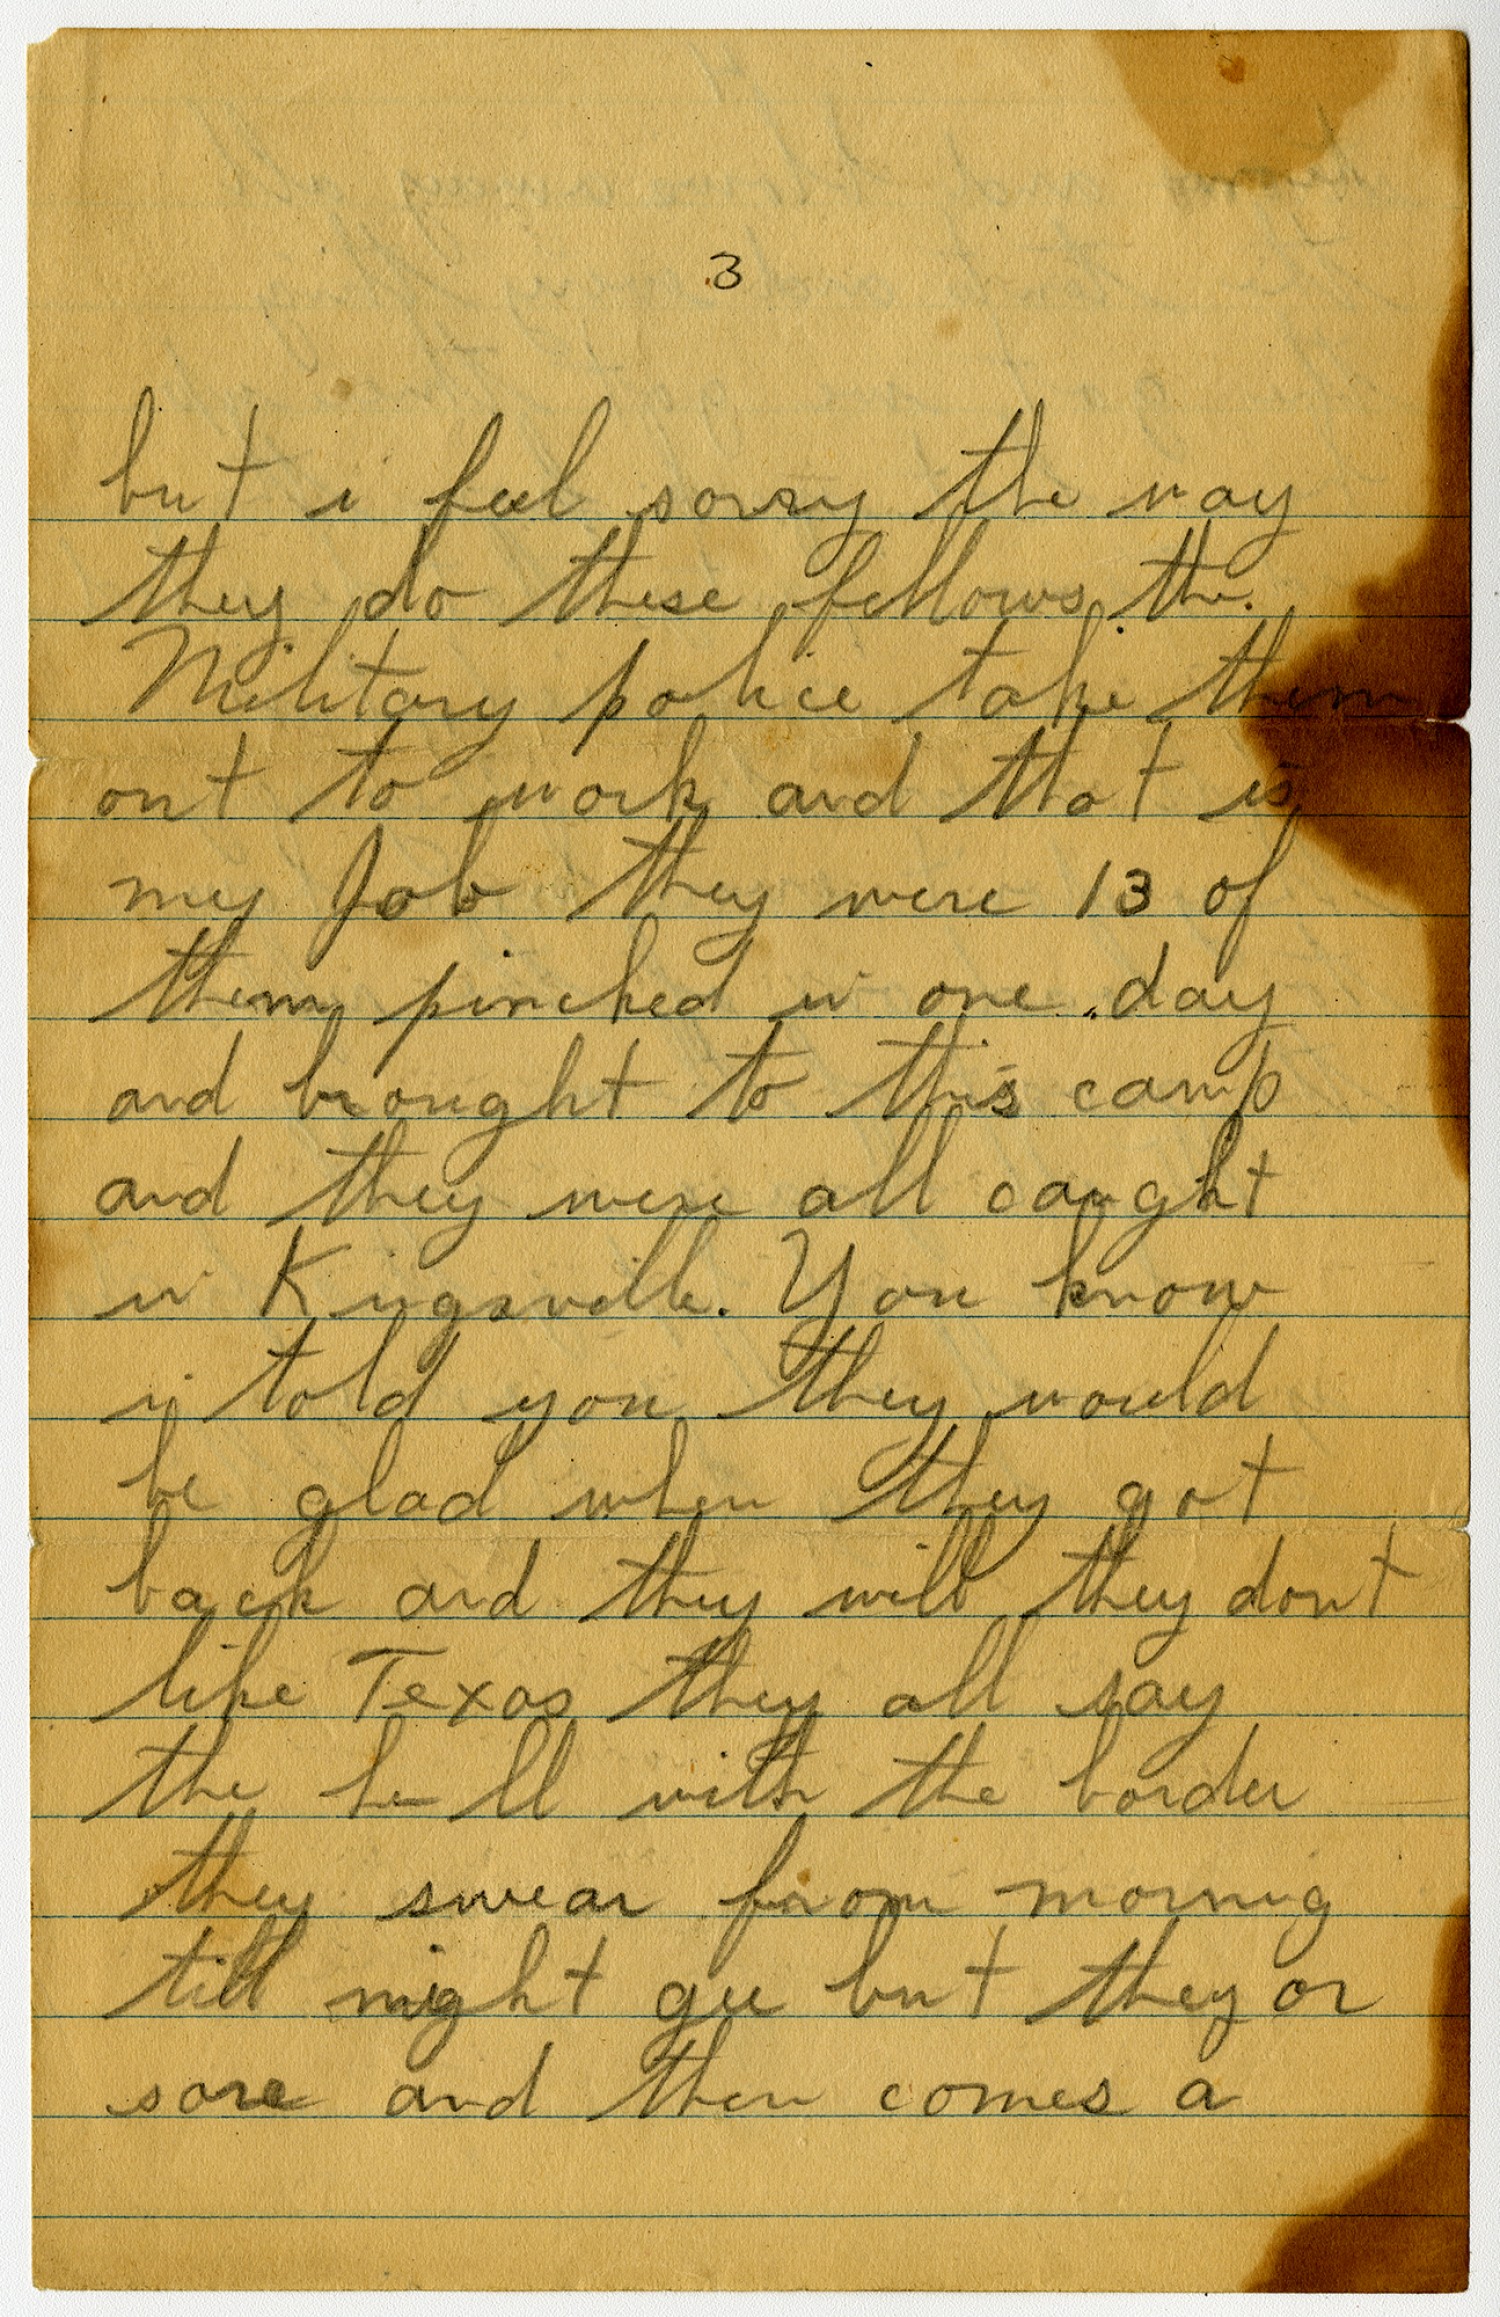 3
but i feel sorry the way
they do these fellows the.
Military police take them
out to work and that is
my Job they were 13 of
them pinched in one day
and brought to this camp
and they were all caught
in Kingsville. You know
i told you they would
be glad when they got
back and they will they dont
like Texas they all say
the hell with the border
they swear from morning
till night gee but they or
sore and then comes a